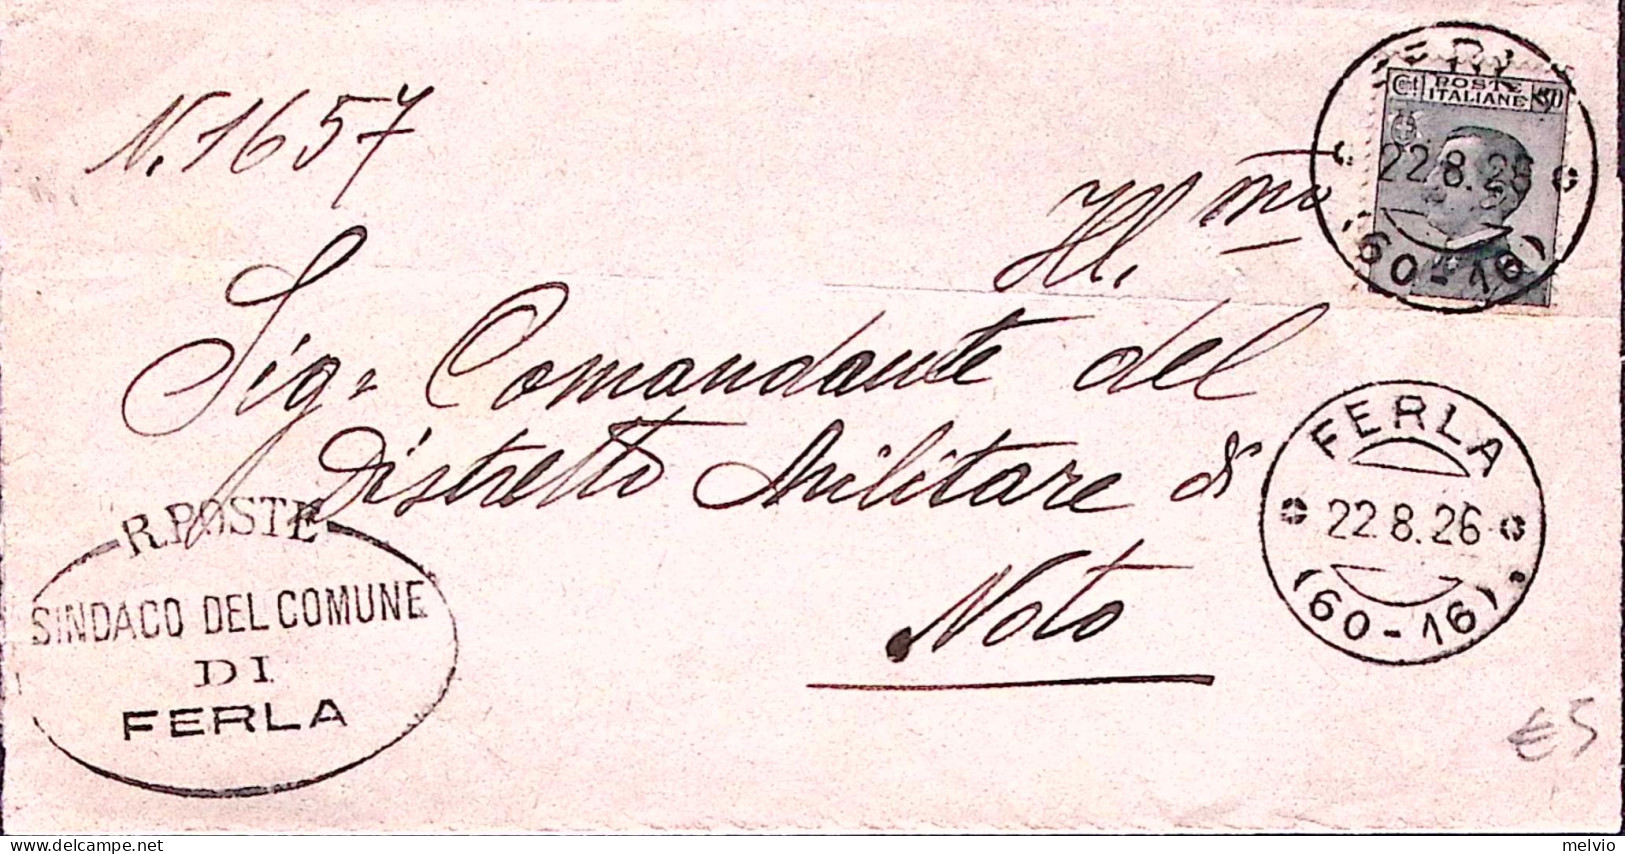 N. 1657
Ill.mo
Sig. Comandante del
Distretto Militare di
Noto
R. POSTE
SINDACO DEL COMUNE
DI
FERLA
Ct POSTE ITALIANE 50
FERLA
22.8.26
(60-16)
FERLA
22.8.26
(60-16)
€5
delcampe.net
melvio